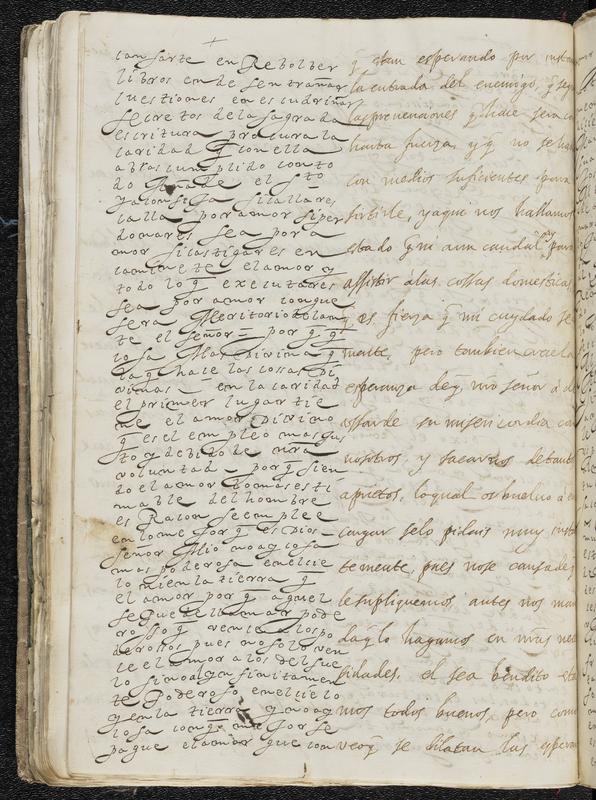 cansarte en Rebolber
libros en desentrañar
questiones en escudriñar
secretos de la sagrada
escritura procura la
caridad q con ella
abras cumplido con to
do
y aconseja si callares
calla por amor si per
donares sea por a
mor si castigares en
caminete el amor y
todo lo q executares
sea por amor conque
sera Meritorio
te el señor = por q q
cosa Mas divina q
la q hace las cosas Di
vinas — en la caridad
el primer lugar tie
ne el amor Divino
q es el empleo mas jus
to y debido de nrã
voluntad — por q sien
do el amor lo mas esti
mable del hombre
es Racon se emplee
en lo mejor q es Dios —
señor mio no ay cosa
mas poderosa en el cie
lo ni en la tierra q
el amor por q aquel
se puede llamar pode
rosso q vence a los po
derosos pues no solo ven
ce el amor a los del sue
lo sino al q en finitamen
te Poderoso en el cielo
y en la tierra y no ay
cosa con q mejor se
pague el amor que con
q stan esperando por
la entrada del enemigo, y
las prevenciones q hicie
hasta fuerza, y q no se
con medios suficientes para
sistirle, ya que nos hallamos
estado q ni aun caudal ay para
assistir a las cossas domesticas
q es fuerza q mi cuydado se
mente, pero tambien
esperanza de q nrõ señor a de
de su misericordia
nosotros, y sacarnos de tant
aprietos, lo qual os buelvo a en
cargar se lo pidais muy
temente, pues no se cansa de q
le supliquemos antes nos man
da q lo hagamos en nrãs nes
sidades, el sea bendito
mos todos buenos, pero como
veo q se dilatan las esperan